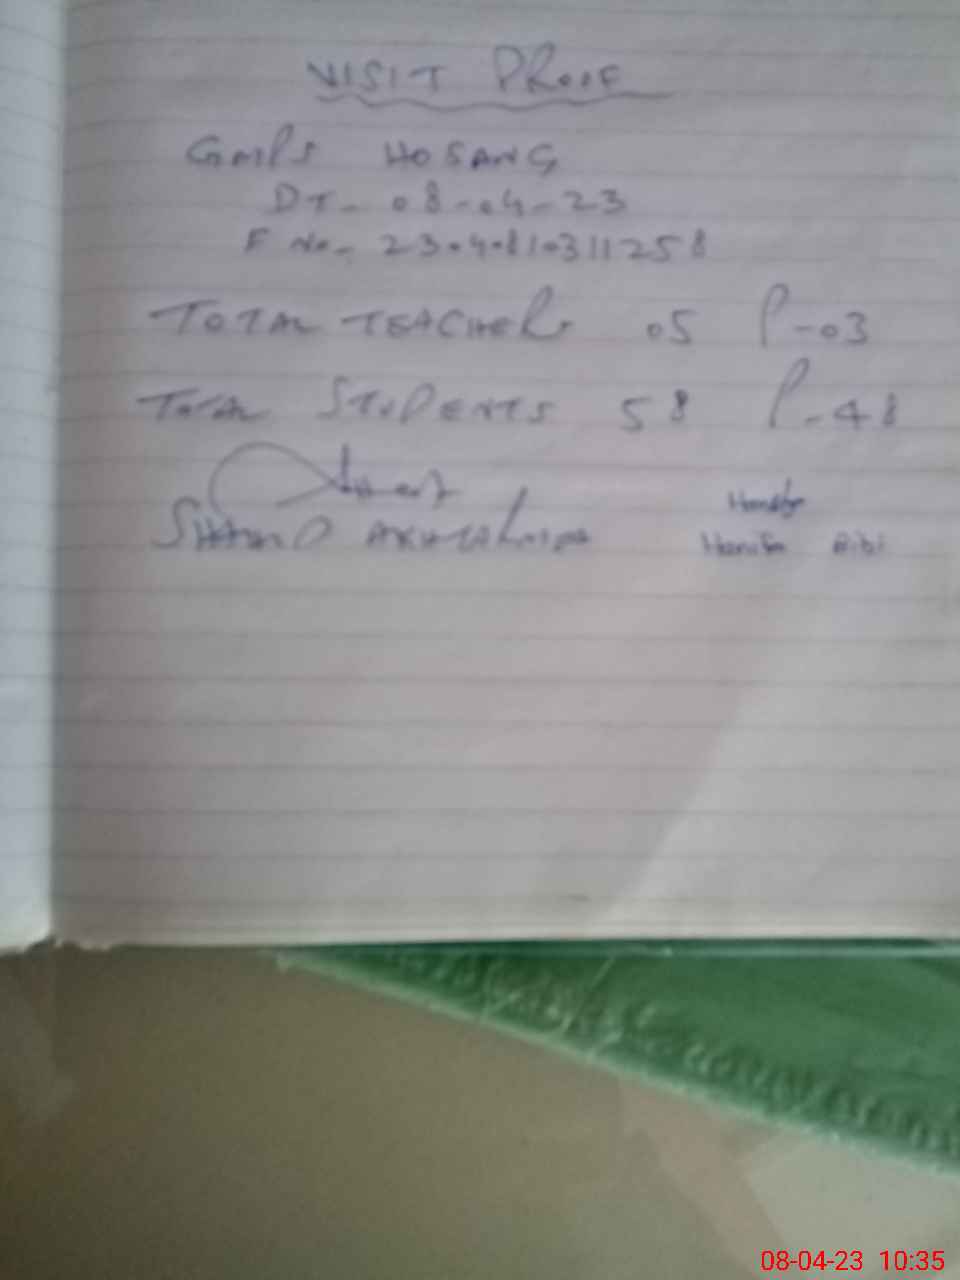 VISIT PROOF
GMPS HOSANG
DT- 08-04-23
F No- 23040810311258
TOTAL TEACHER 05 P-03
TOTAL STUDENTS 58 P-48
Hanifa Bibi
08-04-23 10:35